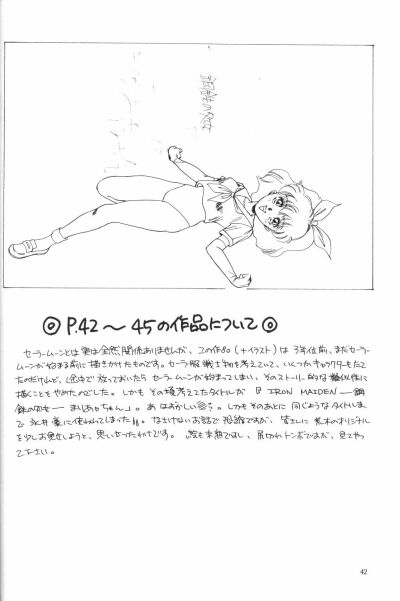 鋼鉄の処女
◎ P.42 ～ 45の作品について ◎
セーラームーンとは実は全然関係ありませんが、この作品(+イラスト)は3年位前、まだセーラー
ムーンが始まる前に描きかけたものです。セーラー服戦士物を考えていて、いくつかキャラクターをたて
たのだけれど、途中で放っておいたらセーラームーンが始まってしまい、そのストーリー的な類似性に
描くことをやめたのでした。しかもその時考えてたタイトルが『IRON MAIDEN ― 鋼
鉄の処女 ― まりあちゃん』。あはおかしい。しかもそのあとに同じようなタイトルま
で永井豪に使われてしまった!!。なさけないお話で恐縮ですが、皆さんに荒木のオリジナル
を少しお見せしようと、思い立ったわけです。絵も未熟ですし、尻切れトンボですが、見てやっ
て下さい。
42